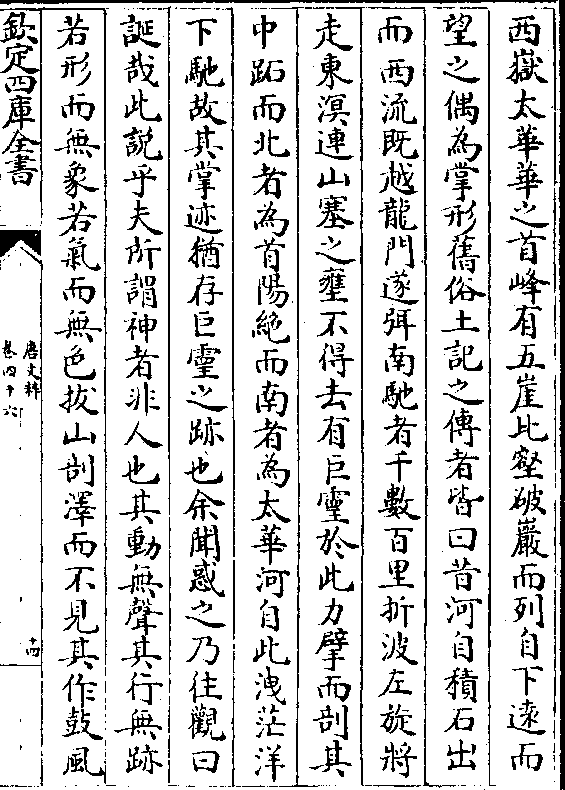 西嶽太華華之首峰有五崖比壑破巖而列自下遠而
望之偶為掌形舊俗土記之傳者皆曰昔河自積石出
而西流既越龍門遂弭南馳者千數百里折波左旋將
走東溟連山塞之壅不得去有巨靈於此力擘而剖其
中跖而北者為首陽絶而南者為太華河自此洩茫洋
下馳故其掌迹猶存巨靈之跡也余聞惑之乃往觀曰
誕哉此說乎夫所謂神者非人也其動無聲其行無跡
若形而無象若氣而無色拔山剖澤而不見其作鼓風
欽定四庫全書
唐文粹
卷四十六
十四